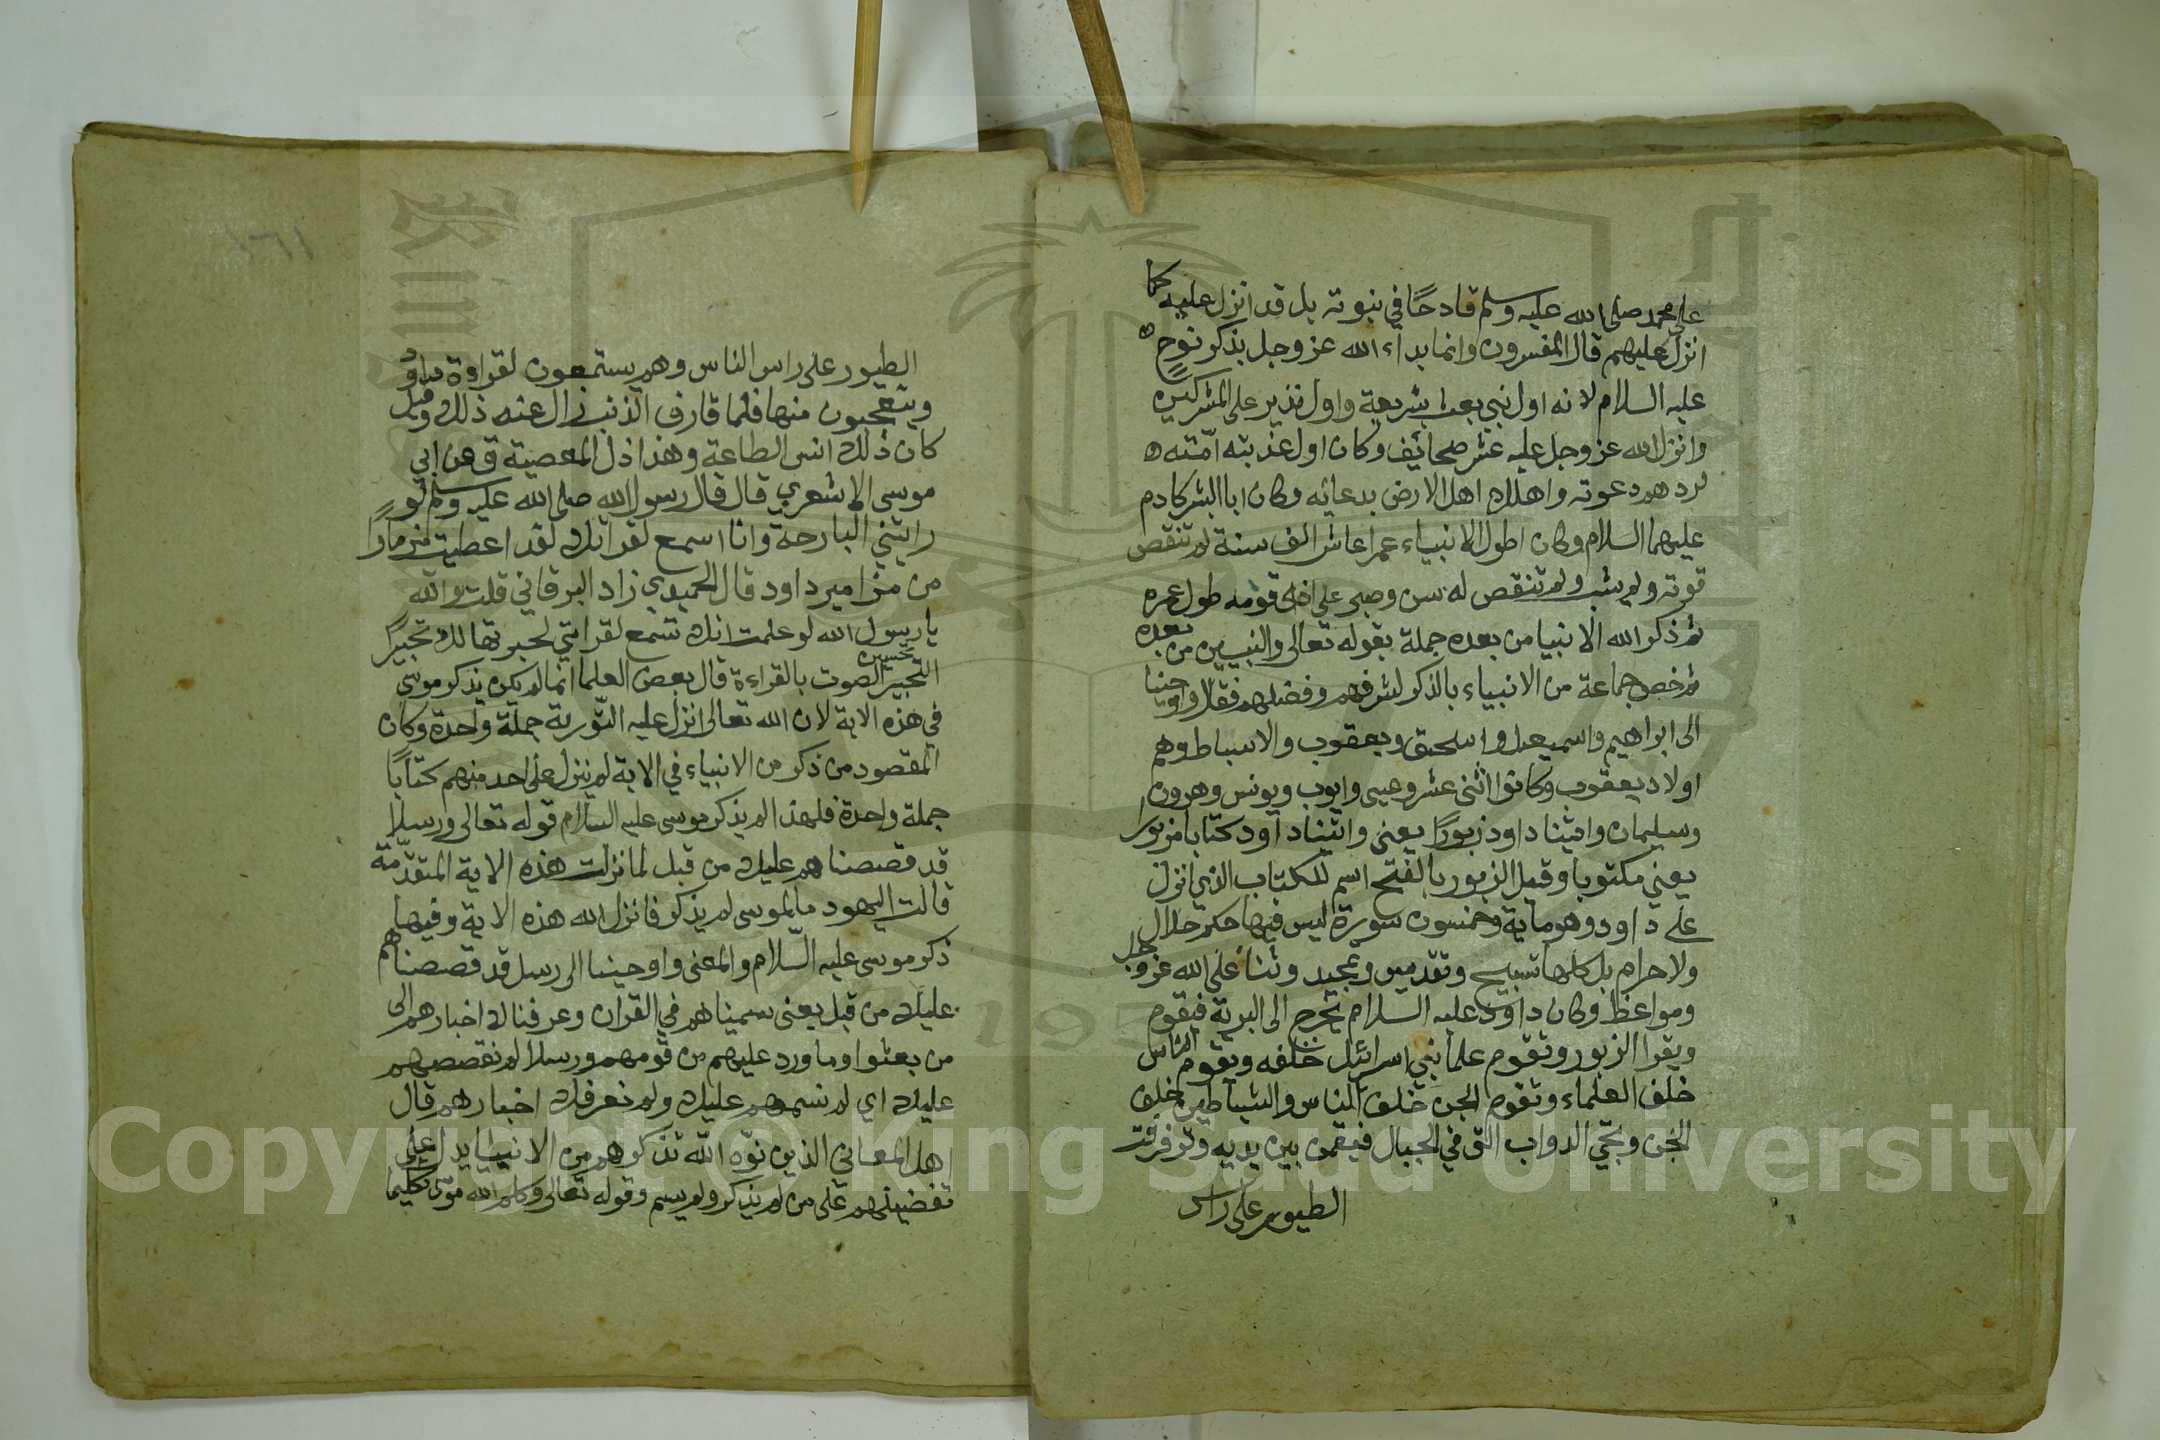 على محمد صلى الله عليه وسلم قادحًا في نبوته بل قد انزل عليه كما
انزل عليهم قال المفسرون وانما بداء الله عز وجل بذكر نوح
عليه السلام لانه اول نبي بعث بشريعة واول نذير على المشركين
وانزل الله عز وجل عليه عشر صحائف وكان اول عذبته امته
لردهم دعوته واهلاك اهل الارض بدعائه وكان ابا البشر كادم
عليهما السلام وكان اطول الانبياء عمرا عاش الف سنة لم تنقص
قوته ولم يشب ولم تنقص له سن وصبر على اذى قومه طول عمره
ثم ذكر الله الانبيا من بعده جملة بقوله تعالى والنبيين من بعده
ثم خص جماعة من الانبياء بالذكر لشرفهم وفضلهم فقال واوحينا
الى ابراهيم واسمعيل واسحق ويعقوب والاسباط وهم
اولاد يعقوب وكانوا اثنى عشر وعيسى وايوب ويونس وهرون
وسليمان واتينا داود زبورًا يعني واتينا داود كتابا مزبورا
يعني مكتوبا وقيل الزبور بالفتح اسم للكتاب الذي انزل
على داود وهو ماية وخمسون سورة ليس فيها حكم حلال
ولا حرام بل كلها تسبيح وتقديس وتمجيد وثنا على الله عز وجل
ومواعظ وكان داود عليه السلام يخرج الى البرية فيقوم
ويقرا الزبور وتقوم علما بني اسرائيل خلفه ويقوم الناس
خلف العلماء وتقوم الجن خلف الناس والشياطين خلف
الجن وتجي الدواب التي في الجبال فيقمن بين يديه وترفرفت
الطيور على راس
الطيور على راس الناس وهم يستمعون لقراءة داود
ويتعجبون منها فلما قارف الذنب زال عنه ذلك وقيل
كان ذلك انس الطاعة وهذا ذل المعصية ق عن ابي
موسى الاشعري قال قال رسول الله صلى الله عليه وسلم لو
رايتني البارحة وانا اسمع لقراتك لقد اعطيت مزمارًا
من مزامير داود قال الحميدي زاد البرقاني قلت والله
يا رسول الله لو علمت انك تسمع لقراتي لحبرتها لك تحبيرًا
التحبير تحسين الصوت بالقراءة قال بعض العلما انما لم يكن يذكر موسى
في هذه الاية لان الله تعالى انزل عليه التورية جملة واحدة وكان
المقصود من ذكر من الانبياء في الاية لم ينزل على احد منهم كتابا
جملة واحدة فلهذا لم يذكر موسى عليه السلام قوله تعالى ورسلا
قد قصصناهم عليك من قبل لما نزلت هذه الاية المتقدّمة
قالت اليهود ما لموسى لم يذكر فانزل الله هذه الاية وفيها
ذكر موسى عليه السّلام والمعنى واوحينا الى رسل قد قصصناهم
عليك من قبل يعنى سميناهم في القران وعرفناك اخبارهم الى
من بعثوا وما ورد عليهم من قومهم ورسلا لم نقصصهم
عليك اي لم نسمهم عليك ولم نعرفك اخبارهم قال
اهل المعاني الذين نوّه الله بذكرهم من الانبيا يدل على
تفضيلهم على من لم يذكر ولم يسم وقوله تعالى وكلم الله موسى تكليما
Copyright © King Saud University